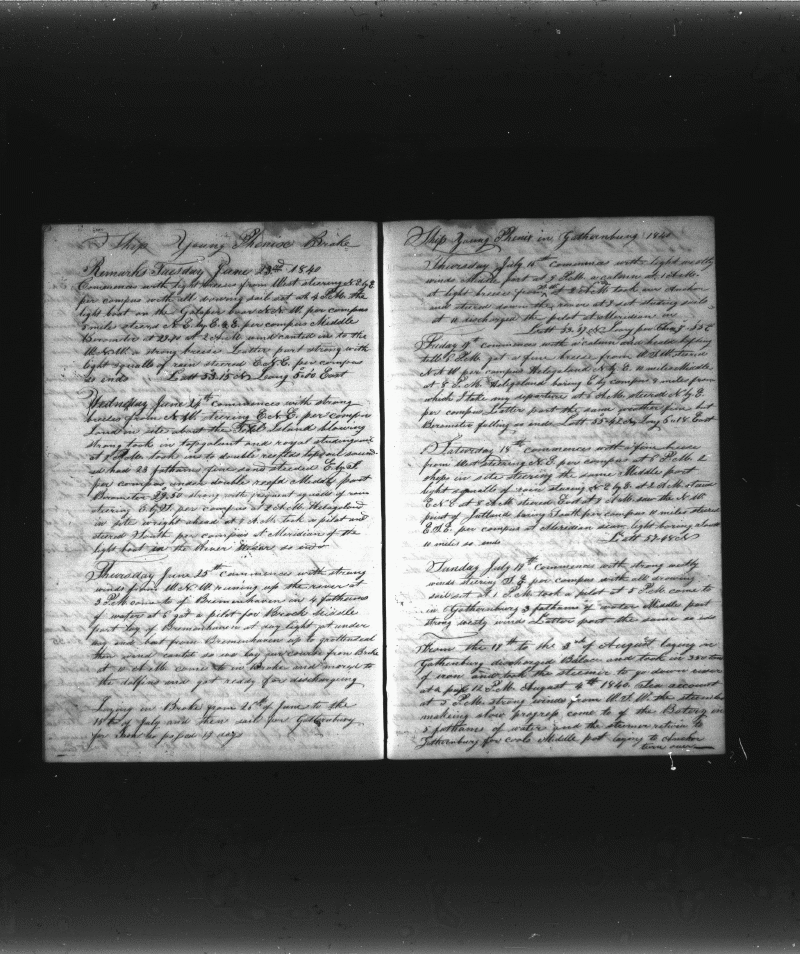 Ship Young Phenix Brake
Remarks Tuesday June 23rd 1840
Commences with light breeses from West steering N E by E
per compas with all drawing sail set at 4 P.M. the
light boat on the Galoper bear N.N.W. per compas
5 miles steard N.E. by E. & E. per compas Middle
Baromiter at 29.70 at 2 A.M. wind canted in to the
W.N.W. a strong breese Latter part strong with
light squalls of rain steered E.N.E. per compas
so ends Latt 53.15 N Long 5.60 East
Wednesday June 24th commences with strong
breeses from N.W. steering E.N.E. per compas
land in site about the Island blowing
strong took in topgalant and royal studingsails
at 8 P.M. took in to double reefed topsail sound
ed had 23 fathoms fine sand steeded E by S
per compas under double reefs Middle part
Baromiter 29.50 strong with frequent squalls of rain
steering E by S per compas at 8 A.M. Heligoland
in site wright ahead at 9 A.M. took a pilot and
steered South per compas at Meridian of the
light boat in the River Weser so ends
Thursday June 25th commences with strong
winds from W.N.W. runing up the rever at
3 P.M. came to of Bremenhaven in 4 fathoms
of water at 8 got a pilot for Brack Middle
part lay of Bremenhaven at day light got under
way and beat from Bremenhaven up to
then wind canted so we lay our course from Brake
at 10 A.M. came to in Brake and moved to
the dolfins and got ready for discharging
Laying in Brake from 26th of June to the
16th of July and then sail for Gothenburg
for Iron
Ship Young Phenix in Gothernburg 1840
Thursday July 16th commences with light westly
winds Middle part at 9 P.M. a calm at 1 A.M.
a light breese from at 2 A.M. took in anchor
and steered down the rever at 3 set studing sails
at 11 discharged the pilot at Meridian in
Latt 53.57 N Long per Chron 8.35 E
Friday 17th commences with a calm and heade
till 6 P.M. got a fine breese from W.S.W. steard
N.N.W. per compas Heligoland N by E 10 miles Middle
at 8 P.M. Heligoland baring E by compas 8 miles from
which I take my departure at 8 A.M. steered N by E
per compas Latter part the same weather fine but
Baromiter falling so ends Latt 55.42 N Long 5.18 East
Saturday 18th commences with a fine breese
from West steering N.E. per compas at 8 P.M. 2
ships in site steering the same Middle part
light squalls of rain steering N.E. by E at 2 A.M. steard
E.N.E. at 8 A.M. steered East by A.M. saw the N.W.
point of Jutland baring South per compas 10 miles steered
E.S.E. per compas at Meridian light baring
10 miles so ends Latt 57.48 N
Sunday July 19th commences with strong westly
winds steering S.E. per compas with all drawing
sail set at 1 P.M. took a pilot at 8 P.M. come to
in Gothernburg 3 fathoms of water Middle part
strong westly winds Latter part the same so ends
From the 19th to the 3rd of August laying in
Gothenburg discharged Balace and took in tons
of iron and took the steemer to go down river
at past 12 P.M. August 4th 1840. Sea account
at 5 P.M. strong winds from W.S.W. the steemer
making slow progress come to of the Batery in
5 fathoms of water and the steemer return to
Gothernburg for coale Middle part laying to anchor
turn over